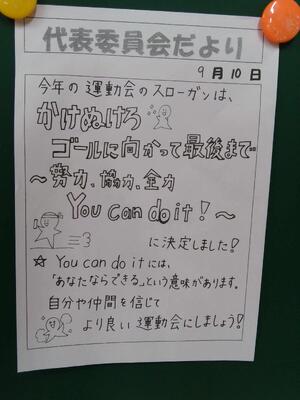 代表委員会だより
9月10日
今年の運動会のスローガンは、
かけぬけろ
ゴールに向かって最後まで
～努力、協力、全力
You can do it!～
に決定しました!
☆ You can do it には、
「あなたならできる」という意味があります。
自分や仲間を信じて
より良い運動会にしましょう!